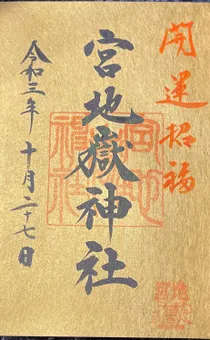 開運招福
宮地嶽神社
令和三年十月二十七日